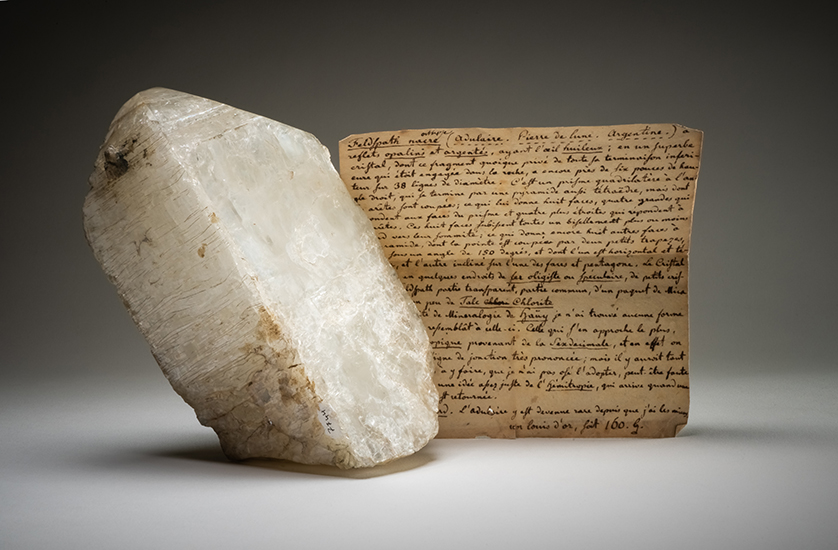 Feldspath nacré (Adulaire. Pierre de lune. Argentine.) a
reflets opalins et argentés, ayant l'œil huileux; en un superbe
cristal, dont ce fragment quoique privé de toute sa terminaison inferi-
eure qui était engagée dans la roche, a encore près de six pouces de hau-
teur sur 38 lignes de diamètre. C'est un prisme quadrilatère à l'an
gle droit, qui se termine par une pyramide aussi tétraèdre, mais dont
arêtes sont ; ce qui lui donne huit faces, quatre grandes qui
pondent aux faces du prisme et quatre plus étroites qui repondent à
Ces huit faces subissent toutes un bisellement plus ou moins
vers leur sommité; ce qui donne encore huit autres faces à
ramide, dont la pointe est coupée par deux petits trapèzes,
sous un angle de 150 degrés, et dont l'un est horizontal et
et l'autre incliné sur l'une des faces et pentagone. Le Cristal
en quelques endroits de fer oligiste ou Spéculaire, de petits crif-
ldspath partie transparent, partie commun, d'un paquet de Mica
peu de Talc Chlorite
té de Mineralogie de Haüy je n'ai trouvé aucune forme
ressemblât à celle-ci. Celle qui s'en approche le plus,
opique provenant de la Sexdecimale, et en effet on
igne de jonction très prononcée; mais il y auroit tant
à y faire, que je n'ai pas osé l'adopter, peut être
une idée assez juste de l'Hémitropie, qui arrive quand un
st retournée.
ard. L'adulaire y est devenue rare depuis que j'ai les
un louis d'or, soit 160.